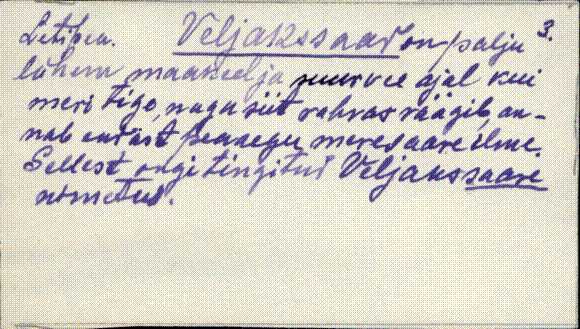 Letipea. Veljakssaar on palju 3.
lühem maakeel ja suurvee ajal kui
meri tige, nagu siit rahvas räägib, an-
nab endast peaaegu meresaare ilme.
Sellest ongi tingitud Veljakssaare
nimetus.